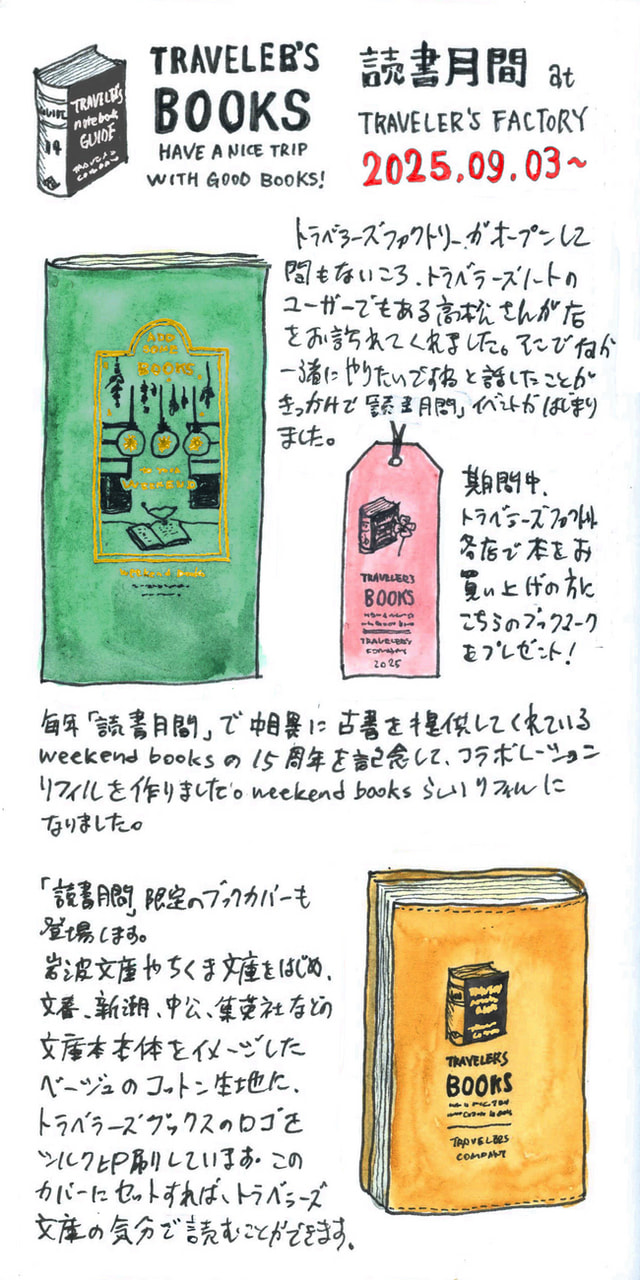 TRAVELER'S
BOOKS
HAVE A NICE TRIP
WITH GOOD BOOKS!
読書月間 at
TRAVELER'S FACTORY
2025.09.03~
TRAVELER'S
notebook
GUIDE
GUIDE
14
トラベラーズファクトリーがオープンして
間もないころ、トラベラーズノートの
ユーザーでもある高松さんが店
をお訪れてくれました。そこでなにか
一緒にやりたいですねと話したことが
きっかけで「読書月間」イベントがはじまり
ました。
ADD
SOME
BOOKS
TO YOUR
WEEKEND
weekend books
TRAVELER'S
BOOKS
TRAVELER'S
COMPANY
2025
期間中、
トラベラーズファクトリー
各店で本をお
買い上げの方に
こちらのブックマーク
をプレゼント!
毎年「読書月間」で中目黒に古書を提供してくれている
weekend booksの15周年を記念して、コラボレーション
リフィルを作りました。weekend booksらしいリフィルに
なりました。
「読書月間」限定のブックカバーも
登場します。
岩波文庫やちくま文庫をはじめ、
文春、新潮、中公、集英社などの
文庫本本体をイメージした
ベージュのコットン生地に、
トラベラーズブックスのロゴを
シルク印刷しています。この
カバーにセットすれば、トラベラーズ
文庫の気分で読むことができます。
TRAVELER'S
BOOKS
TRAVELERS
COMPANY